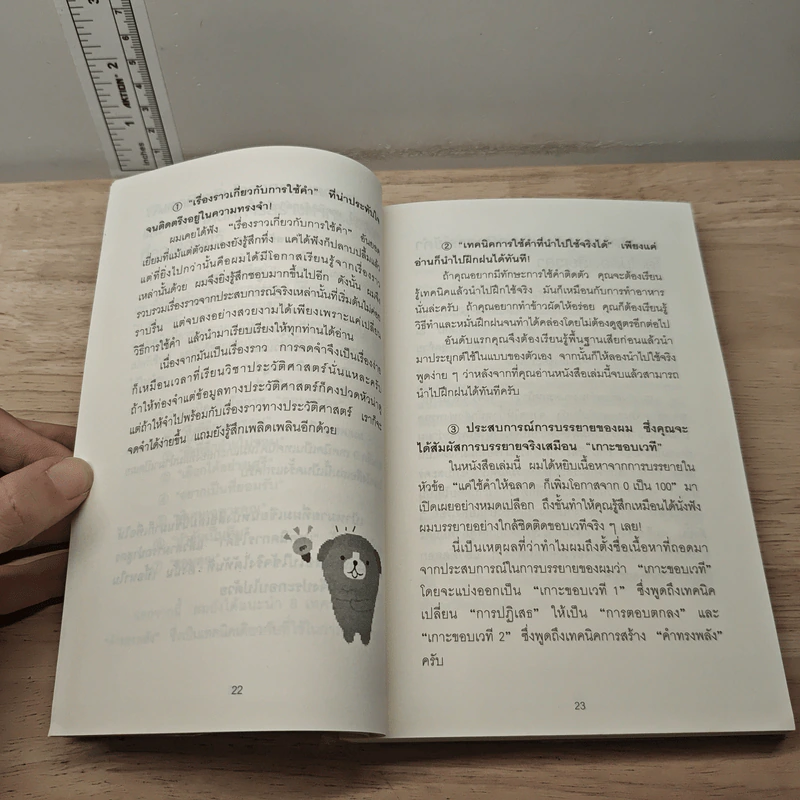 inches
1
2
3
AKTION
1
2
3
4
5
6
7
① "เรื่องราวเกี่ยวกับการใช้คำ" ที่น่าประทับใจ
จนติดตรึงอยู่ในความทรงจำ!
ผมเคยได้ฟัง "เรื่องราวเกี่ยวกับการใช้คำ" อัน
เยี่ยมที่แม้แต่ตัวผมเองยังรู้สึกทึ่ง แค่ได้ฟังก็ปลาบปลื้ม
แต่ที่ยิ่งไปกว่านั้นคือผมได้มีโอกาสเรียนรู้จากเรื่องราว
เหล่านั้นด้วย ผมจึงยิ่งรู้สึกชอบมากขึ้นไปอีก ดังนั้น ผมจึง
รวบรวมเรื่องราวจากประสบการณ์จริงเหล่านั้นที่เริ่มต้นไม่ค่อย
ราบรื่น แต่จบลงอย่างสวยงามได้เพียงเพราะแค่เปลี่ยน
วิธีการใช้คำ แล้วนำมาเรียบเรียงให้ทุกท่านได้อ่าน
เนื่องจากมันเป็นเรื่องราว การจดจำจึงเป็นเรื่องง่าย
ก็เหมือนเวลาที่เรียนวิชาประวัติศาสตร์นั่นแหละครับ
ถ้าให้ท่องจำแต่ข้อมูลทางประวัติศาสตร์ก็คงปวดหัวน่าดู
แต่ถ้าให้จำไปพร้อมกับเรื่องราวทางประวัติศาสตร์ เราก็จะ
จดจำได้ง่ายขึ้น แถมยังรู้สึกเพลิดเพลินอีกด้วย
22
② "เทคนิคการใช้คำที่นำไปใช้จริงได้" เพียงแค่
อ่านก็นำไปฝึกฝนได้ทันที!
ถ้าคุณอยากมีทักษะการใช้คำติดตัว คุณจะต้องเรียน
รู้เทคนิคแล้วนำไปฝึกใช้จริง มันก็เหมือนกับการทำอาหาร
นั่นล่ะครับ ถ้าคุณอยากทำข้าวผัดให้อร่อย คุณก็ต้องเรียนรู้
วิธีทำและหมั่นฝึกฝนจนทำได้คล่องโดยไม่ต้องดูสูตรอีกต่อไป
อันดับแรกคุณจึงต้องเรียนรู้พื้นฐานเสียก่อนแล้วนำ
มาประยุกต์ใช้ในแบบของตัวเอง จากนั้นก็ให้ลองนำไปใช้จริง
พูดง่าย ๆ ว่าหลังจากที่คุณอ่านหนังสือเล่มนี้จบแล้วสามารถ
นำไปฝึกฝนได้ทันทีครับ
③ ประสบการณ์การบรรยายของผม ซึ่งคุณจะ
ได้สัมผัสการบรรยายจริงเสมือน "เกาะขอบเวที"
ในหนังสือเล่มนี้ ผมได้หยิบเนื้อหาจากการบรรยายใน
หัวข้อ "แค่ใช้คำให้ฉลาด ก็เพิ่มโอกาสจาก 0 เป็น 100" มา
เปิดเผยอย่างหมดเปลือก ถึงขั้นทำให้คุณรู้สึกเหมือนได้นั่งฟัง
ผมบรรยายอย่างใกล้ชิดติดขอบเวทีจริง ๆ เลย!
นี่เป็นเหตุผลที่ว่าทำไมผมถึงตั้งชื่อเนื้อหาที่ถอดมา
จากประสบการณ์ในการบรรยายของผมว่า "เกาะขอบเวที"
โดยจะแบ่งออกเป็น "เกาะขอบเวที 1" ซึ่งพูดถึงเทคนิค
เปลี่ยน "การปฏิเสธ" ให้เป็น "การตอบตกลง" และ
"เกาะขอบเวที 2" ซึ่งพูดถึงเทคนิคการสร้าง "คำทรงพลัง"
ครับ
23